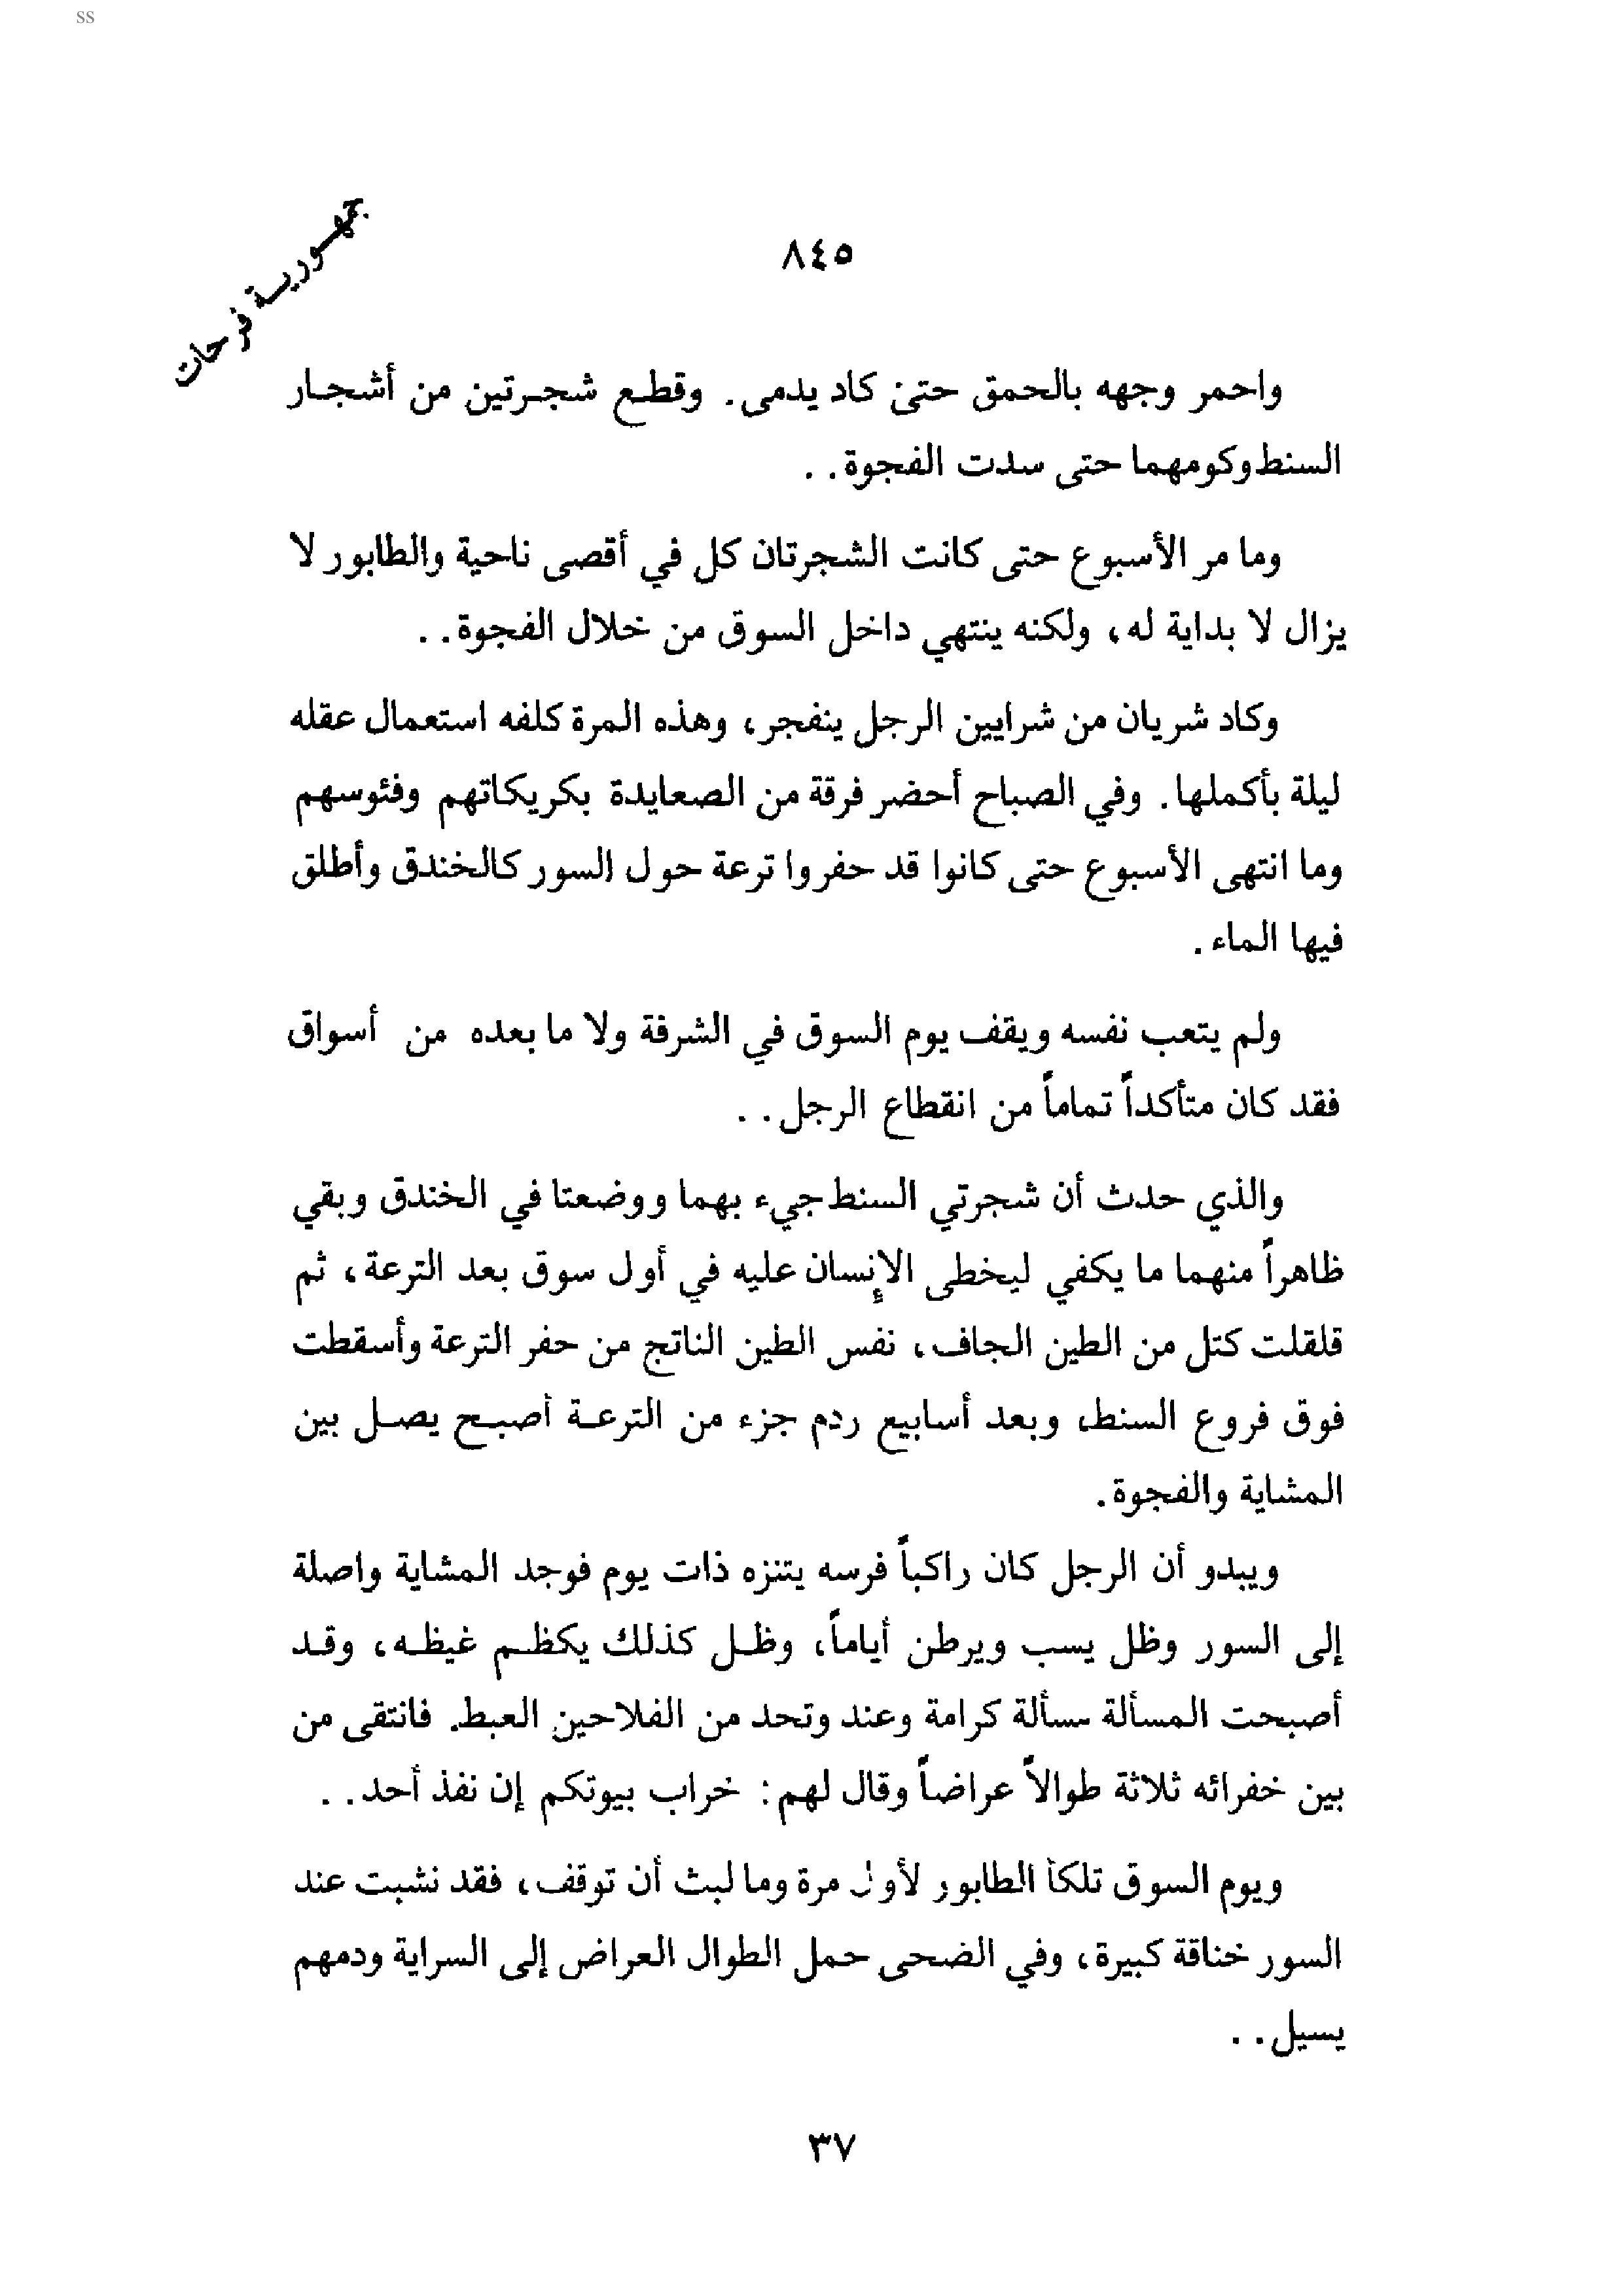 ss
جمهورية فرحات
٨٤٥
واحمر وجهه بالحمق حتى كاد يدمى. وقطع شجرتين من أشجار
السنط وكومهما حتى سدت الفجوة..
وما مر الأسبوع حتى كانت الشجرتان كل في أقصى ناحية والطابور لا
يزال لا بداية له، ولكنه ينتهي داخل السوق من خلال الفجوة..
وكاد شريان من شرايين الرجل ينفجر، وهذه المرة كلفه استعمال عقله
ليلة بأكملها. وفي الصباح أحضر فرقة من الصعايدة بكريكاتهم وفئوسهم
وما انتهى الأسبوع حتى كانوا قد حفروا ترعة حول السور كالخندق وأطلق
فيها الماء.
ولم يتعب نفسه ويقف يوم السوق في الشرفة ولا ما بعده من أسواق
فقد كان متأكداً تماماً من انقطاع الرجل..
والذي حدث أن شجرتي السنط جيء بهما ووضعتا في الخندق وبقي
ظاهراً منهما ما يكفي ليخطى الإنسان عليه في أول سوق بعد الترعة، ثم
قلقلت كتل من الطين الجاف، نفس الطين الناتج من حفر الترعة وأسقطت
فوق فروع السنط، وبعد أسابيع ردم جزء من الترعة أصبح يصل بين
المشاية والفجوة.
ويبدو أن الرجل كان راكباً فرسه يتنزه ذات يوم فوجد المشاية واصلة
إلى السور وظل يسب ويرطن أياماً، وظل كذلك يكظم غيظه، وقد
أصبحت المسألة مسألة كرامة وعند وتحد من الفلاحين العبط. فانتقى من
بين خفرائه ثلاثة طوالاً عراضاً وقال لهم: خراب بيوتكم إن نفذ أحد..
ويوم السوق تلكأ الطابور لأول مرة وما لبث أن توقف، فقد نشبت عند
السور خناقة كبيرة، وفي الضحى حمل الطوال العراض إلى السراية ودمهم
يسيل..
٣٧